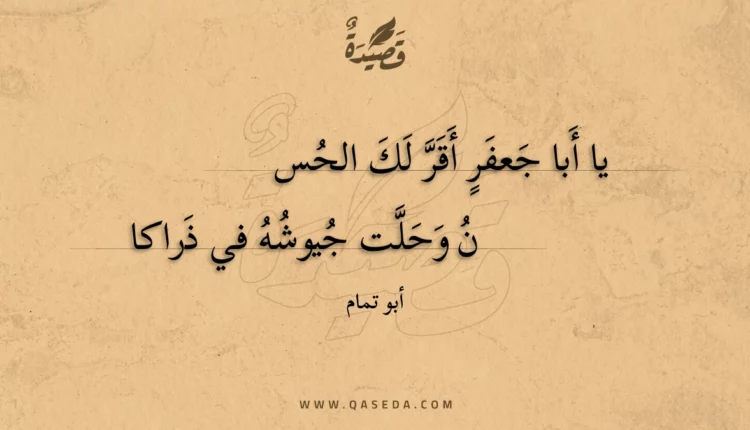 قَصِيْدَةٌ
يا أَبا جَعفَرٍ أَقَرَّ لَكَ الحُس
نُ وَحَلَّت جُيوشُهُ في ذَراكا
أبو تمام
WWW.QASEDA.COM